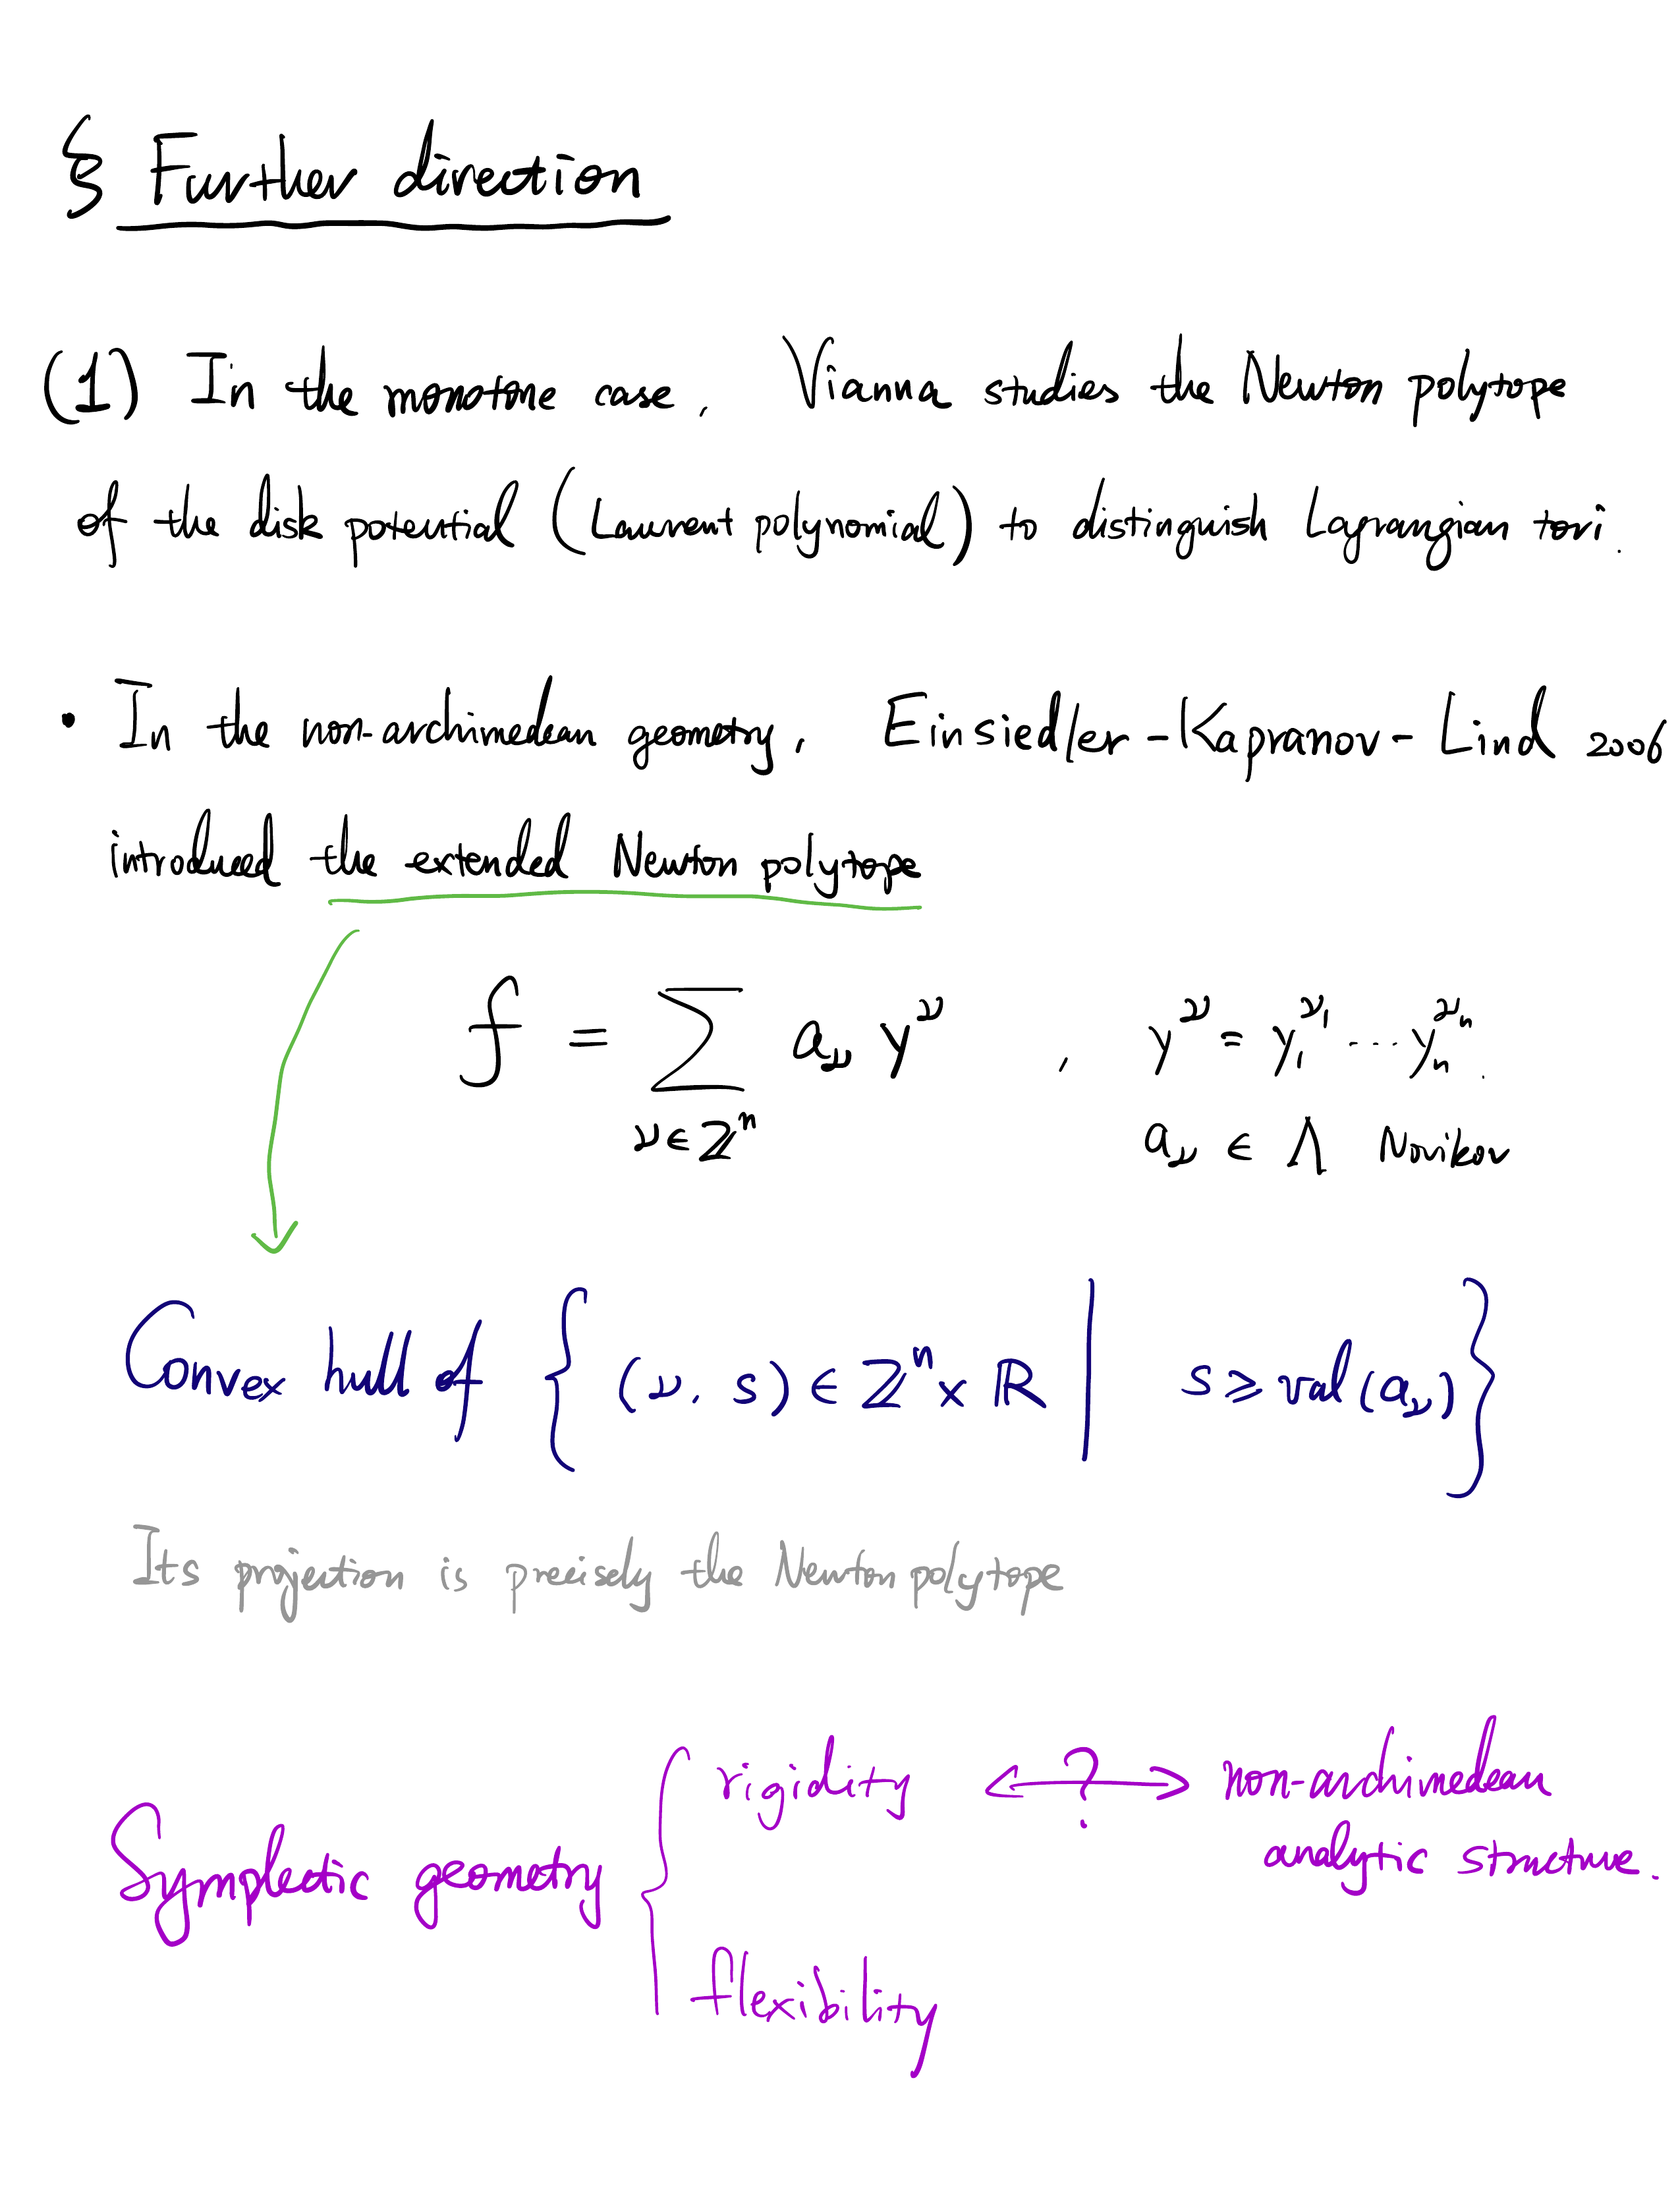 § Further direction
(1) In the monotone case, Vianna studies the Newton polytope
of the disk potential (Laurent polynomial) to distinguish Lagrangian tori.
• In the non-archimedean geometry, Einsiedler-Kapranov-Lind 2006
introduced the extended Newton polytope
f = ∑ a_ν y^ν , y^ν = y_1^{ν_1} ··· y_n^{ν_n}.
ν∈ℤ^n a_ν ∈ Λ Novikov
Convex hull of { (ν, s) ∈ ℤ^n × ℝ | s ⩾ val(a_ν) }
Its projection is precisely the Newton polytope
Symplectic geometry { rigidity <-?-> non-archimedean
analytic structure.
flexibility